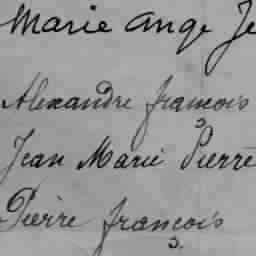 Marie Ange Je
Alexandre françois
Jean Marie Pierre
Pierre françois